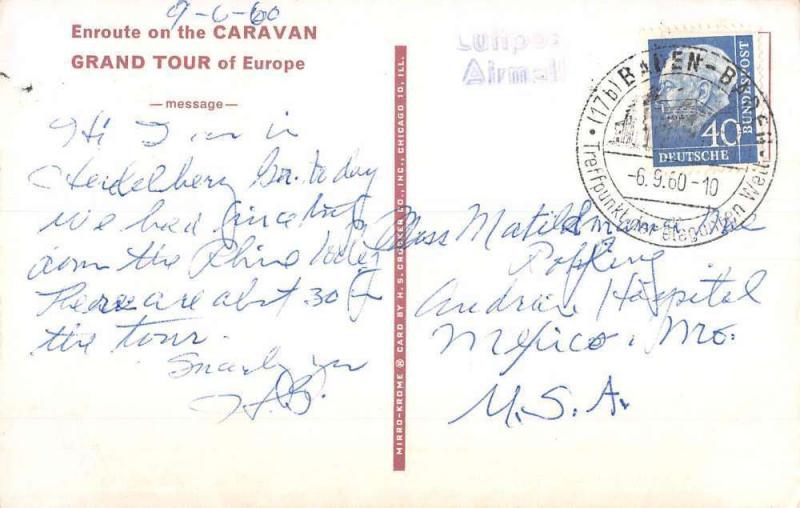 9-6-60
Enroute on the CARAVAN
GRAND TOUR of Europe
—message—
Hi I am in
Heidelberg Ger. today
We had fine trip
down the Rhine today
There are abt 30 of
the tour.
H.B.
MIRRO-KROME ® CARD BY H.S. CROCKER CO., INC., CHICAGO 10, ILL.
Luftpost
Airmail
40
DEUTSCHE
BUNDESPOST
(17b) BADEN-BADEN
-6.9.60-10
Treffpunkt der eleganten Welt
Miss Matilda
Audrain Hospital
Mexico, Mo.
U.S.A.